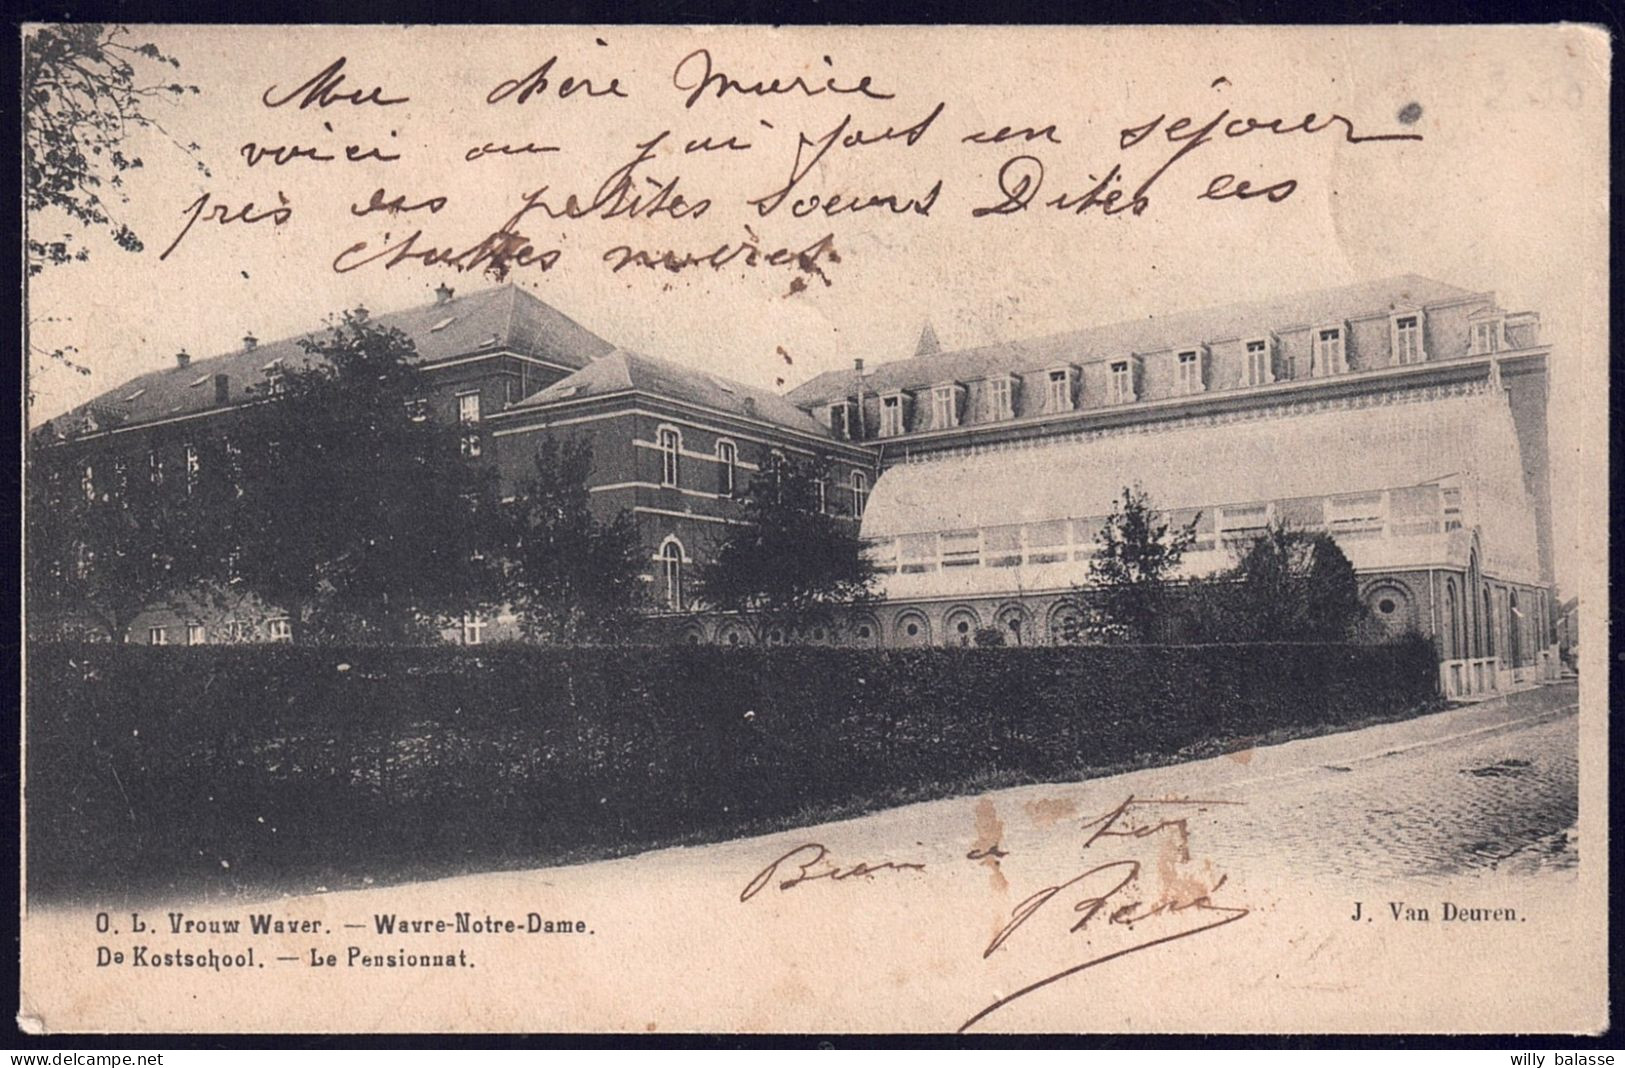 Ma chère Marie
voici ou j'ai fait un séjour
près des petites soeurs Dites les
Chattes noires
Bien a toi
René
O. L. Vrouw Waver. — Wavre-Notre-Dame.
De Kostschool. — Le Pensionnat.
J. Van Deuren.
willy balasse
delcampe.net